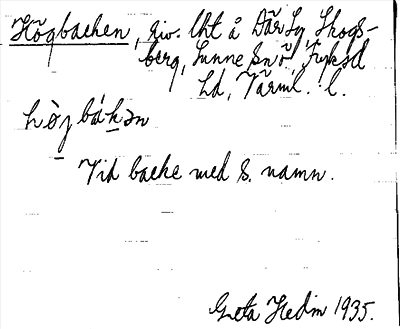 Högbacken, riv. lht å Där Sy Skogs-
berg, Sunne sn ö, Fryksd
hd, Värml. l.
hø̀ɟ bákən
Vid backe med s. namn.
Greta Hedin 1935.